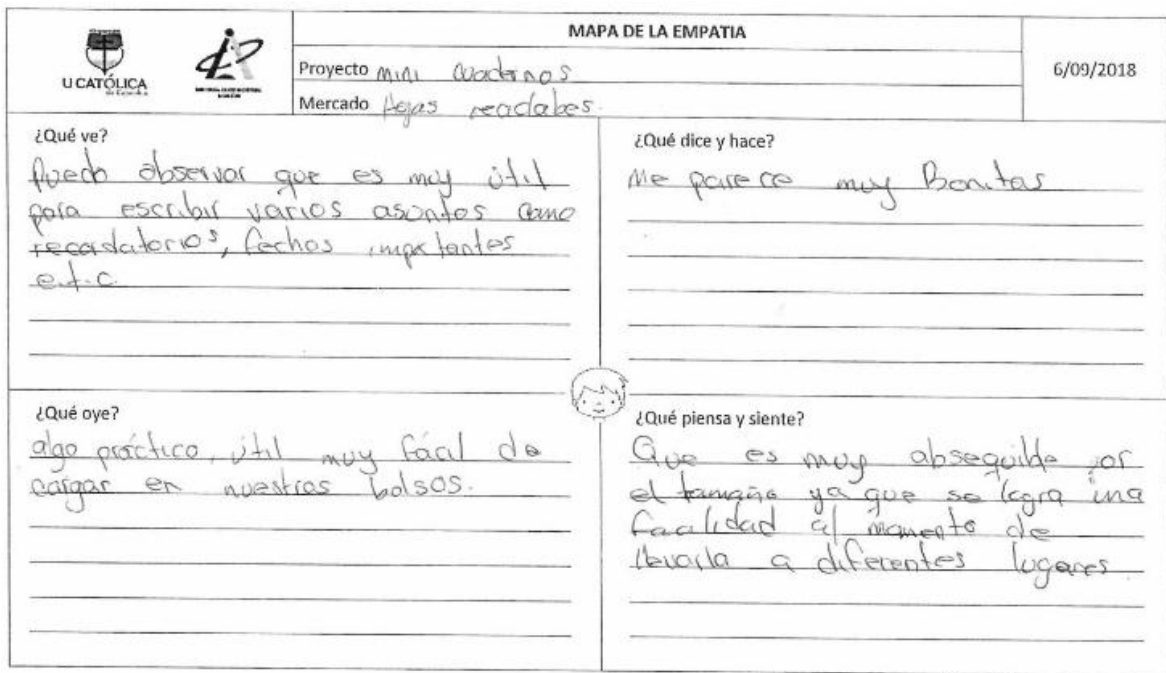 MAPA DE LA EMPATIA
U CATÓLICA
Proyecto mini cuadernos
Mercado Hojas reciclabes.
6/09/2018
¿Qué ve?
Puedo observar que es muy útil
para escribir varios asuntos como
recordatorios, fechas importantes
e.t.c
¿Qué dice y hace?
Me parece muy Bonitas
¿Qué oye?
algo práctico, útil muy fácil de
cargar en nuestros bolsos.
¿Qué piensa y siente?
Que es muy absequible por
el tamaño ya que se logra una
facilidad al momento de
llevarla a diferentes lugares.